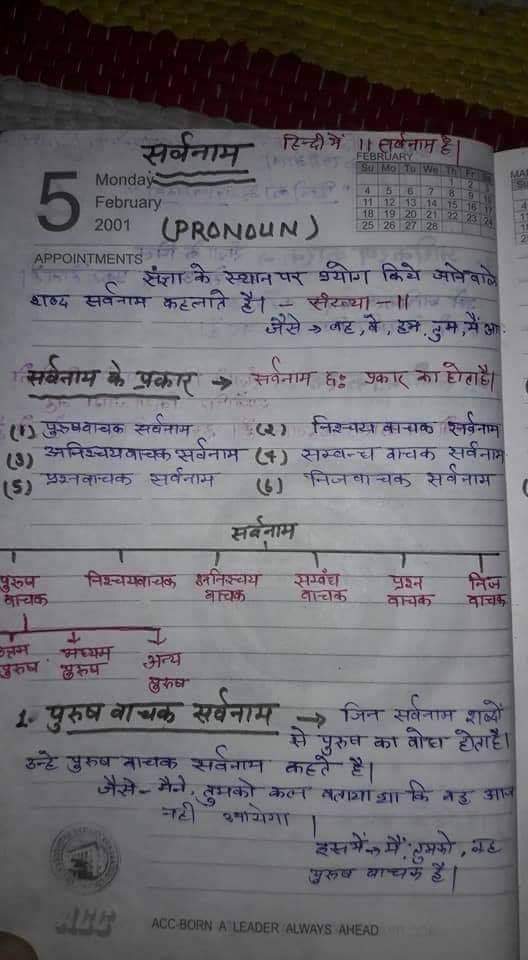 हिन्दी में 11 सर्वनाम है।
सर्वनाम
5
Monday
February
2001
(PRONOUN)
FEBRUARY
Su Mo Tu We Th Fr
1 2
4 5 6 7 8 9
11 12 13 14 15 16
18 19 20 21 22 23 24
25 26 27 28
APPOINTMENTS
संज्ञा के स्थान पर प्रयोग किये जाने वाले
शब्द सर्वनाम कहलाते है। - संख्या - 11
जैसे → वह, वे, हम, तुम, मैं
सर्वनाम के प्रकार → सर्वनाम छः प्रकार का होता है।
(1) पुरुषवाचक सर्वनाम (2) निश्चय वाचक सर्वनाम
(3) अनिश्चयवाचक सर्वनाम (4) सम्बन्ध वाचक सर्वनाम
(5) प्रश्नवाचक सर्वनाम (6) निजवाचक सर्वनाम
सर्वनाम
पुरुष वाचक निश्चयवाचक अनिश्चय वाचक सम्बंध वाचक प्रश्न वाचक निज वाचक
उत्तम पुरुष मध्यम पुरुष अन्य पुरुष
1- पुरुष वाचक सर्वनाम → जिन सर्वनाम शब्दों
से पुरुष का बोध होता है।
उन्हे पुरुष वाचक सर्वनाम कहते है।
जैसे - मैने, तुमको कल बताया था कि वह आज
नही आयेगा।
इसमें → मैं, तुमको, वह
पुरुष वाचक है।
ACC
ACC-BORN A LEADER ALWAYS AHEAD